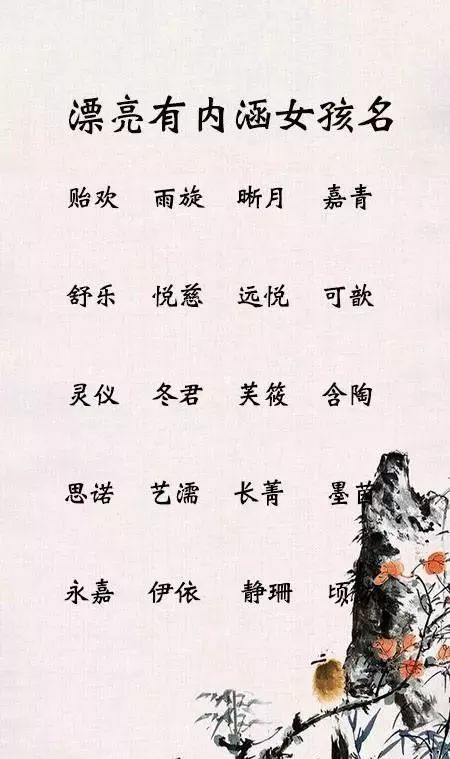 漂亮有内涵女孩名
贻欢 雨旋 晰月 嘉青
舒乐 悦慈 远悦 可歆
灵仪 冬君 芙筱 含陶
思诺 艺濡 长菁 墨茵
永嘉 伊依 静珊 顷